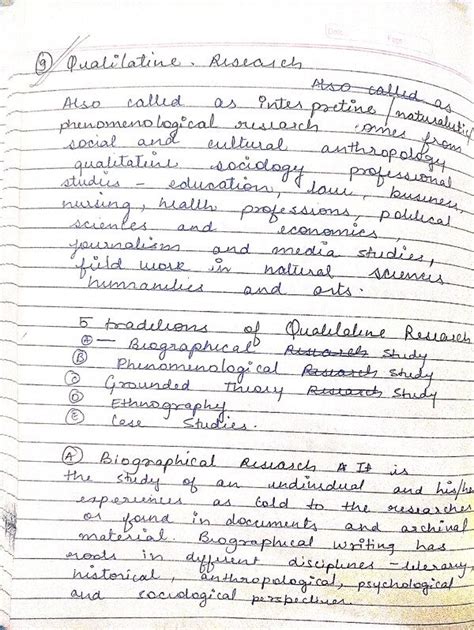 Date Page
9 Qualitative. Research
Also called as
Also called as interpretive / naturalistic/
phenomenological research comes from
social and cultural anthropology
qualitative sociology professional
studies - education, law, business,
nursing, health professions, political
sciences and economics,
journalism and media studies,
field work in natural sciences
humanities and arts.
5 traditions of Qualitative Research
A - Biographical Research Study
B Phenomenological Research Study
C Grounded Theory Research Study
D Ethnography
E Case Studies.
A Biographical Research It is
the study of an individual and his/her
experiences as told to the researcher
or found in documents and archival
material. Biographical writing has
roots in different disciplines - literary,
historical, anthropological, psychological
and sociological perspectives.